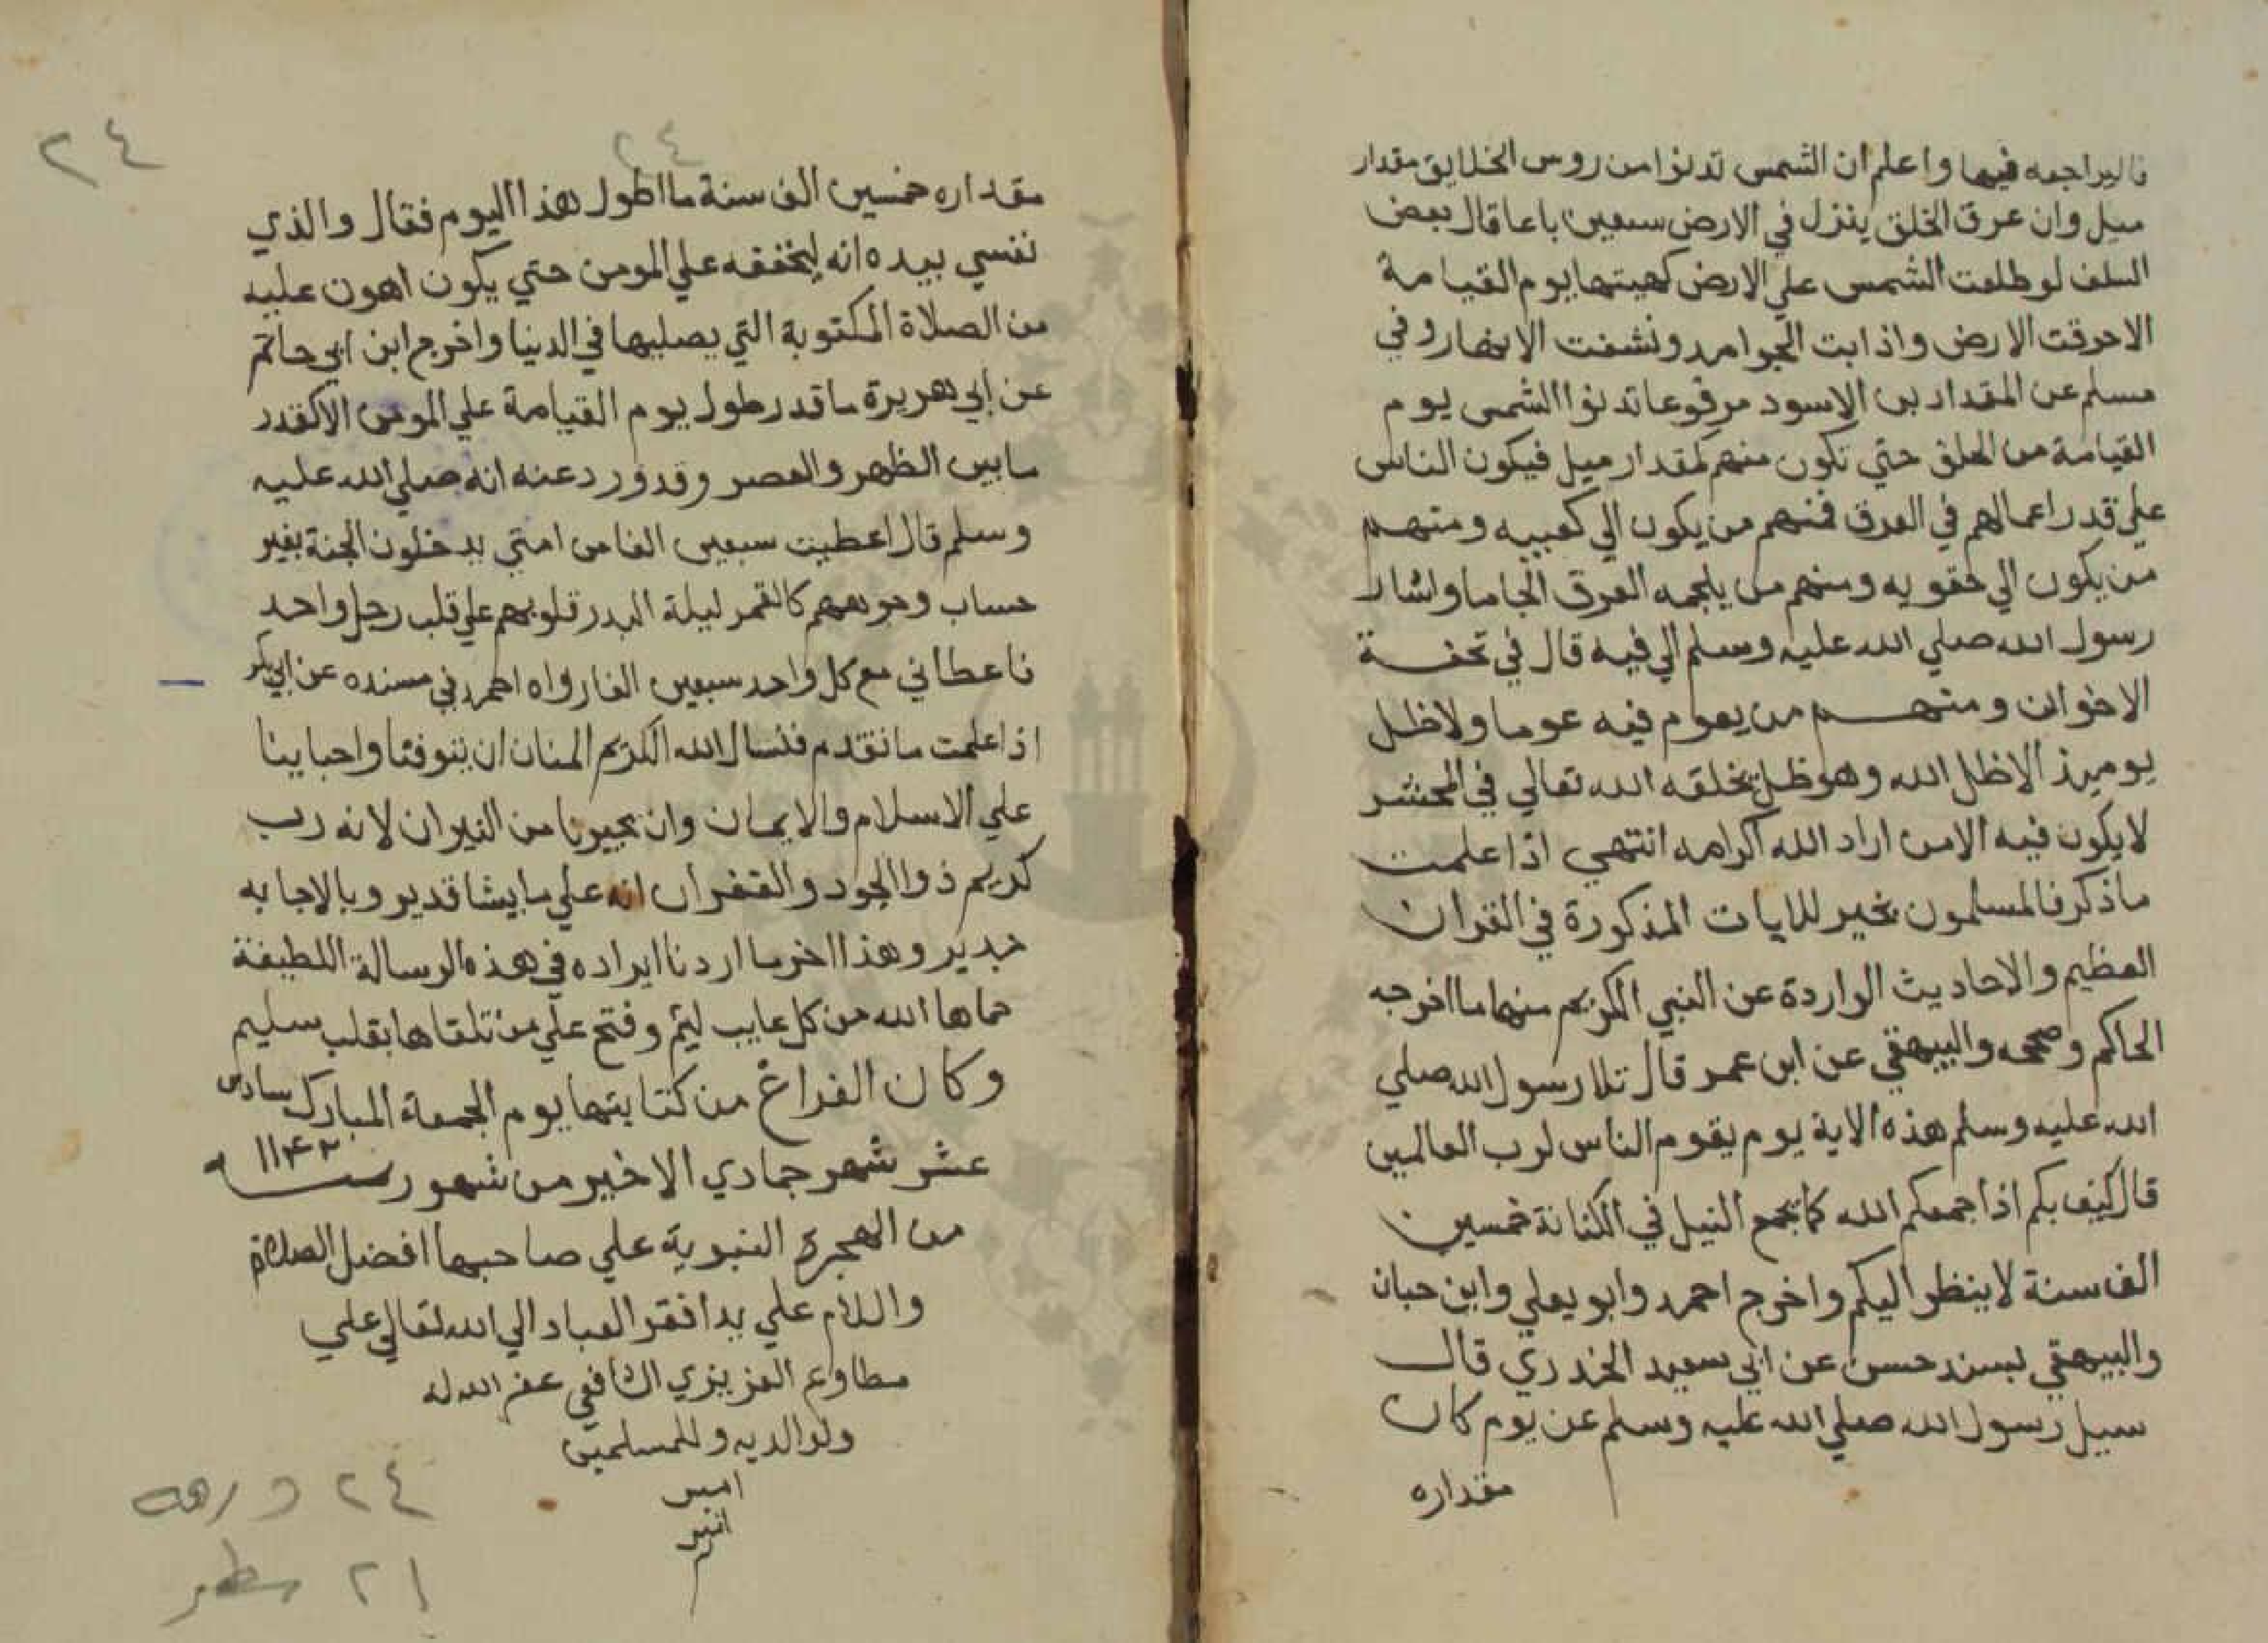 فاليراجعه فيها واعلم ان الشمس تدنوا من روس الخلايق مقدار
ميل وان عرق الخلق ينزل في الارض سبعين باعا قال بعض
السلف لو طلعت الشمس علي الارض كهيتها يوم القيامة
الاحرقت الارض واذابت الجوامد ونشفت الانهار وفي
مسلم عن المقداد بن الاسود مرفوعا تدنوا الشمس يوم
القيامة من الخلق حتي تكون منهم كمقدار ميل فيكون الناس
علي قدر اعمالهم في العرق فمنهم من يكون الي كعبيه ومنهم
من يكون الي حقويه ومنهم من يلجمه العرق الجاما واشار
رسول الله صلي الله عليه وسلم الي فيه قال في تحفة
الاخوان ومنهم من يعوم فيه عوما ولاظل
يوميذ الاظل الله وهو ظل يخلقه الله تعالي في المحشر
لا يكون فيه الامن اراد الله اكرامه انتهي اذا علمت
ماذكر فالمسلمون بخير للايات المذكورة في القران
العظيم والاحاديث الواردة عن النبي الكريم منها ما اخرجه
الحاكم وصححه والبيهقي عن ابن عمر قال تلا رسول الله صلي
الله عليه وسلم هذه الاية يوم يقوم الناس لرب العالمين
قال كيف بكم اذا جمعكم الله كما يجمع النبل في الكنانة خمسين
الف سنة لا ينظر اليكم واخرج احمد وابو يعلي وابن حبان
والبيهقي بسند حسن عن ابي سعيد الخدري قال
سيل رسول الله صلي الله عليه وسلم عن يوم كان
مقداره
٢٤
٢٤
مقداره خمسين الف سنة ما اطول هذا اليوم فقال والذي
نفسي بيده انه ليخففه علي المومن حتي يكون اهون عليه
من الصلاة المكتوبة التي يصليها في الدنيا واخرج ابن ابي حاتم
عن ابي هريرة ما قدر طول يوم القيامة علي المومن الا كقدر
ما بين الظهر والعصر وقد ورد عنه انه صلي الله عليه
وسلم قال اعطيت سبعين الفا من امتي يدخلون الجنة بغير
حساب وجوههم كالقمر ليلة البدر قلوبهم علي قلب رجل واحد
فاعطاني مع كل واحد سبعين الفا رواه احمد في مسنده عن ابي بكر
اذا علمت ما تقدم فنسال الله الكريم المنان ان يتوفنا واحبابنا
علي الاسلام والايمان وان يجيرنا من النيران لانه رب
كريم ذوا الجود والغفران انه علي ما يشا قدير وبالاجابه
جدير وهذا اخر ما اردنا ايراده في هذه الرسالة اللطيفة
حماها الله من كل عايب ليم وفتح علي من تلقاها بقلب سليم
وكان الفراغ من كتابتها يوم الجمعة المبارك سادس
عشر شهر جمادي الاخير من شهور سنه ١١٤٢
من الهجرة النبوية علي صاحبها افضل الصلاة
والسلام علي يد افقر العباد الي الله تعالي علي
مطاوع العزيزي الشافعي غفر الله له
ولوالديه وللمسلمين
امين
٢٤ ورقه
٢١ سطر